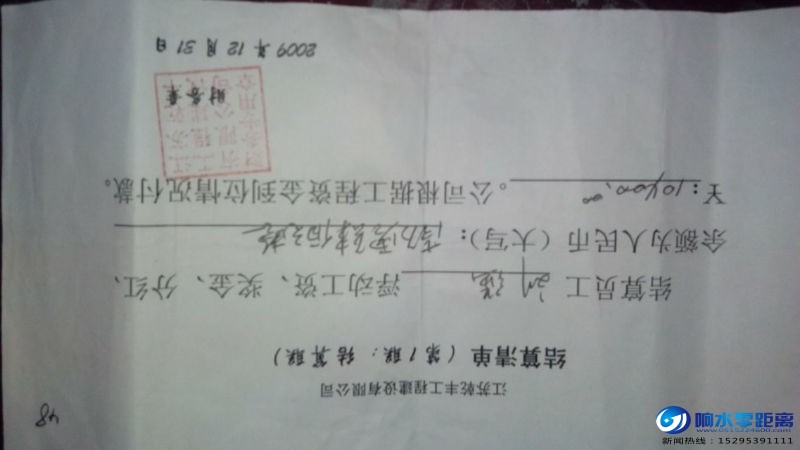 48
江苏乾丰工程建设有限公司
结算清单（第1联：结算联）
结算员工 浮动工资、奖金、分红、
余额为人民币（大写）：
￥：10400.00 。公司根据工程资金到位情况付款。
财务章
2009年12月31日
响水零距离
www.0515224600.com
新闻热线：15295391111